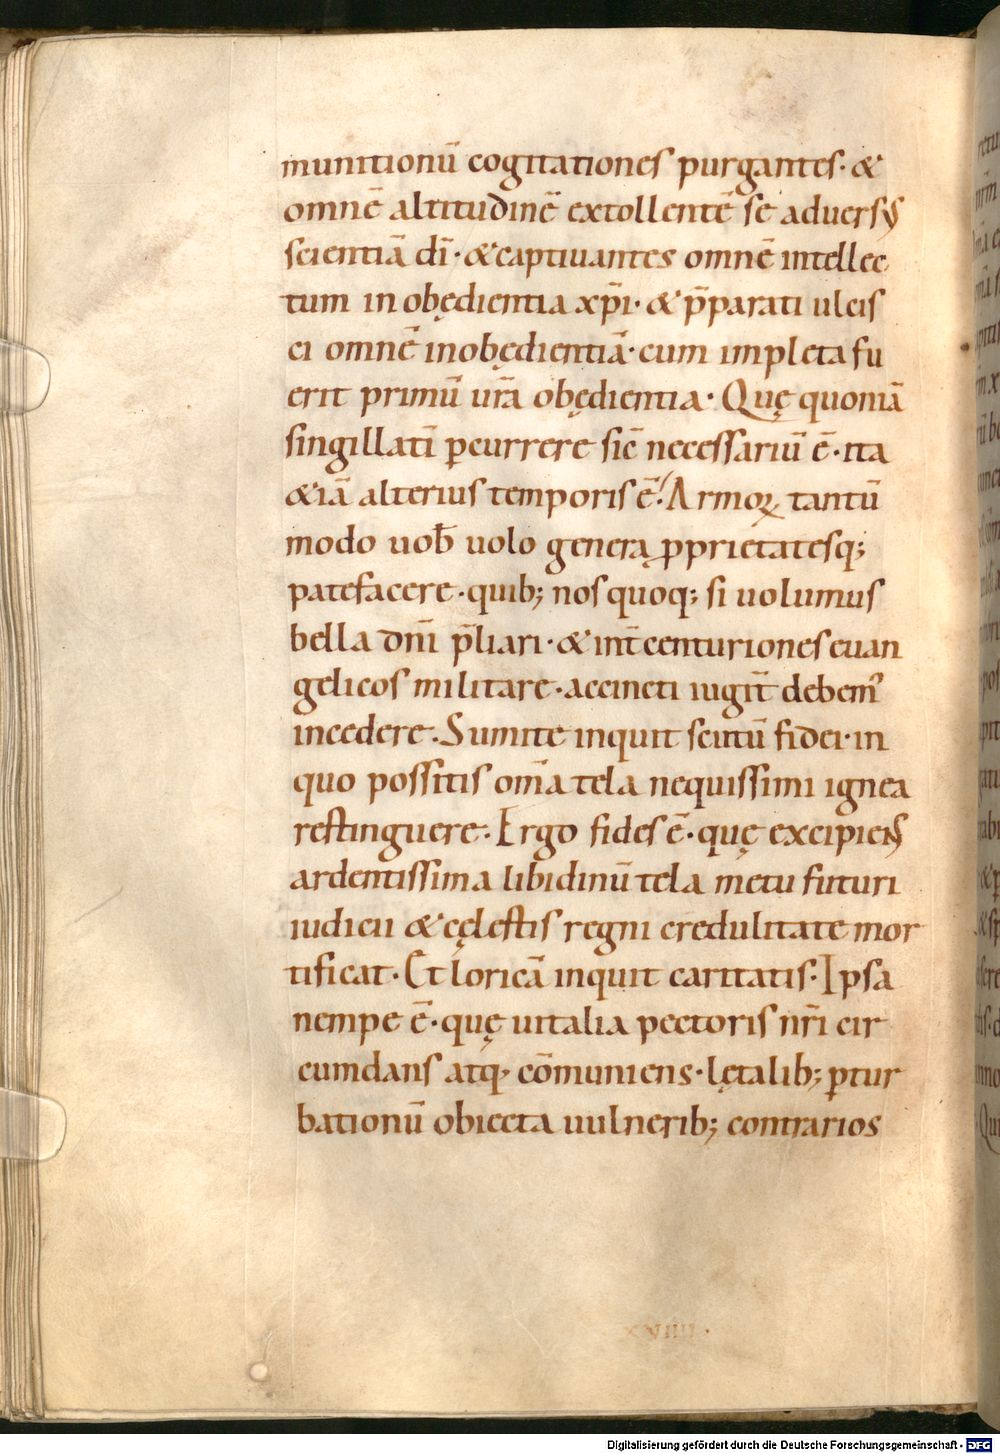 munitionū cogitationes purgantes· &
omnē altitudinē extollentē se adversꝰ
scientiā dī· & captiuantes omnē intellec
tum in obędientia xp̄i· & p̄parati ulcis
ci omnē inobędientiā· cum impleta fu
erit primū ur̄a obędientia· Quę quoniā
singillatī ꝑcurrere sic̄ necessariū ē· ita
&iā alterius temporis ē· Armoꝝ tantū
modo uob̄ uolo genera ꝓprietatesq;
patefacere· quib; nos quoq; si uolumus
bella dnī p̄liari· & int̄ centuriones euan
gelicos militare· accincti iugit̄ debemꝰ
incedere· Sumite inquit scutū fidei· in
quo possitis om̄a tela nequissimi ignea
restinguere· Ergo fides ē· quę excipiens
ardentissima libidinū tela metu futuri
iudicii & cęlestis regni credulitate mor
tificat· Et loricā inquit caritatis· Ipsa
nempe ē· quę uitalia pectoris nr̄i cir
cumdans atq; cōmuniens· lętalib; ꝑtur
bationū obiecta uulnerib; contrarios
XVIIII·
Digitalisierung gefördert durch die Deutsche Forschungsgemeinschaft - DFG